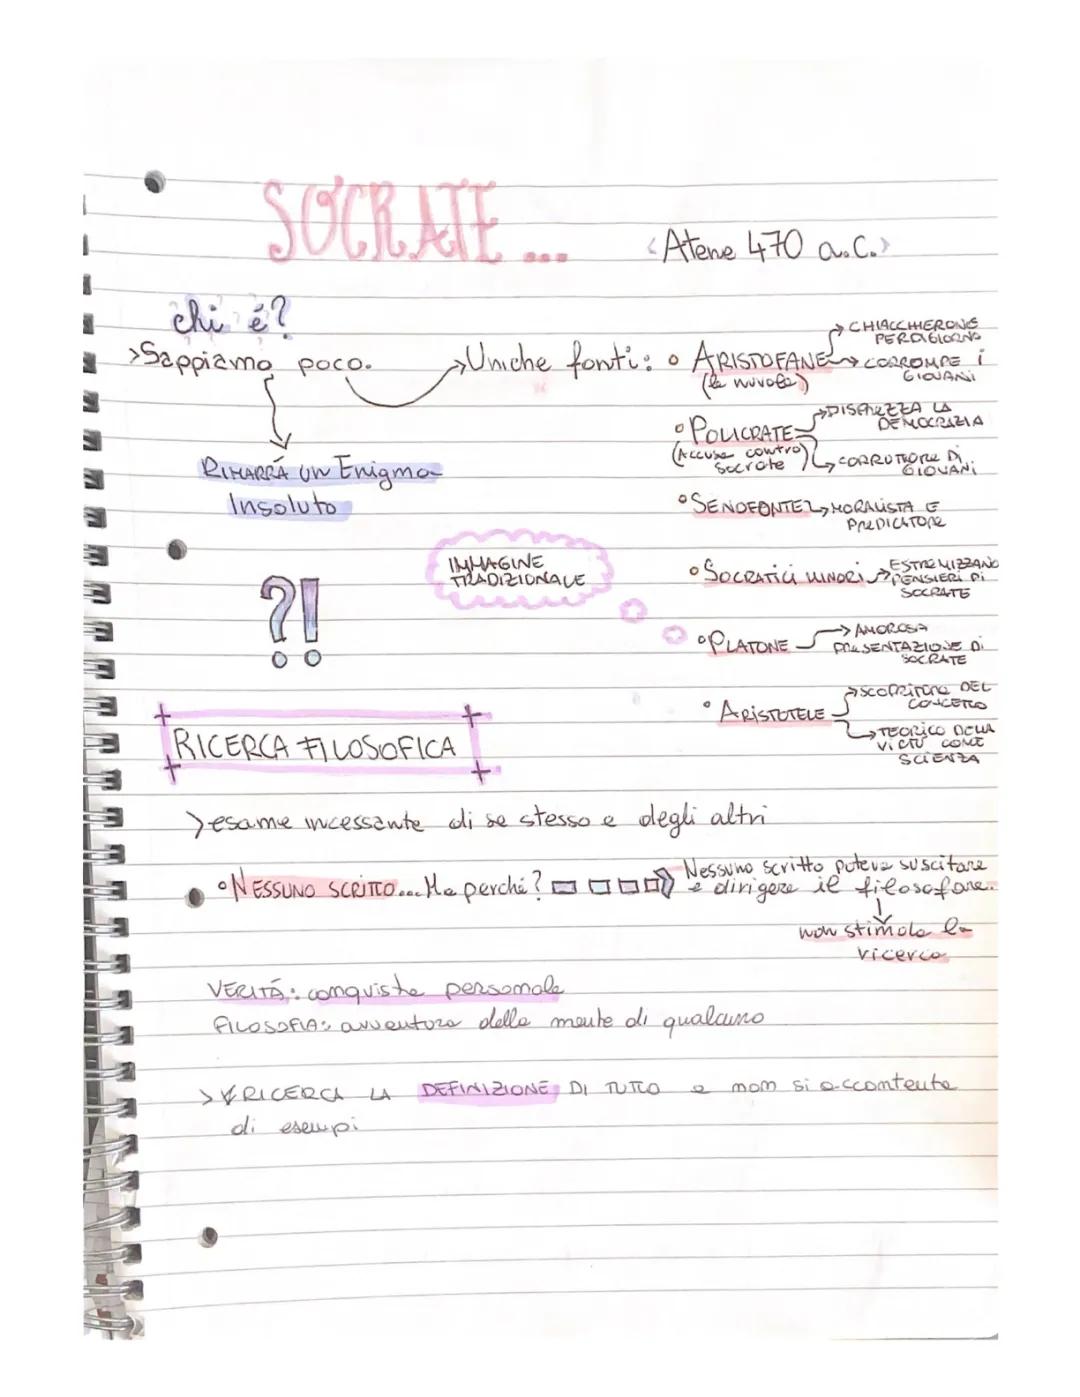 SOCRATE...
<Atene 470 a.C.>
chi é?
>Sappiamo poco.
Rimarrá un Enigma
Insoluto
?!
→Uniche fonti:
• ARISTOFANE
(le nuvole)
→ CHIACCHIERONE
PERDIGIORNO
→ CORROMPE I
GIOVANI
• POLICRATE
(Accusa contro
Socrate)
→DISPREZZA LA
DEMOCRAZIA
→CORRUTTORE DI
GIOVANI
• SENOFONTE→MORALISTA E
PREDICATORE
IMMAGINE
TRADIZIONALE
• SOCRATICI MINORI→ESTREMIZZANO
PENSIERI DI
SOCRATE
• PLATONE
→ AMOROSA
PRESENTAZIONE DI
SOCRATE
• ARISTOTELE
→SCOPRITORE DEL
CONCETTO
→TEORICO DELLA
VIRTÙ COME
SCIENZA
RICERCA FILOSOFICA
>esame incessante di se stesso e degli altri
• NESSUNO SCRITTO...Ma perché?
Nessuno scritto poteva suscitare
e dirigere il filosofare.
non stimola la
ricerca
VERITÁ: conquista personale
FILOSOFIA: avventura della mente di qualcuno
> RICERCA LA DEFINIZIONE DI TUTTO e non si accontenta
di esempi